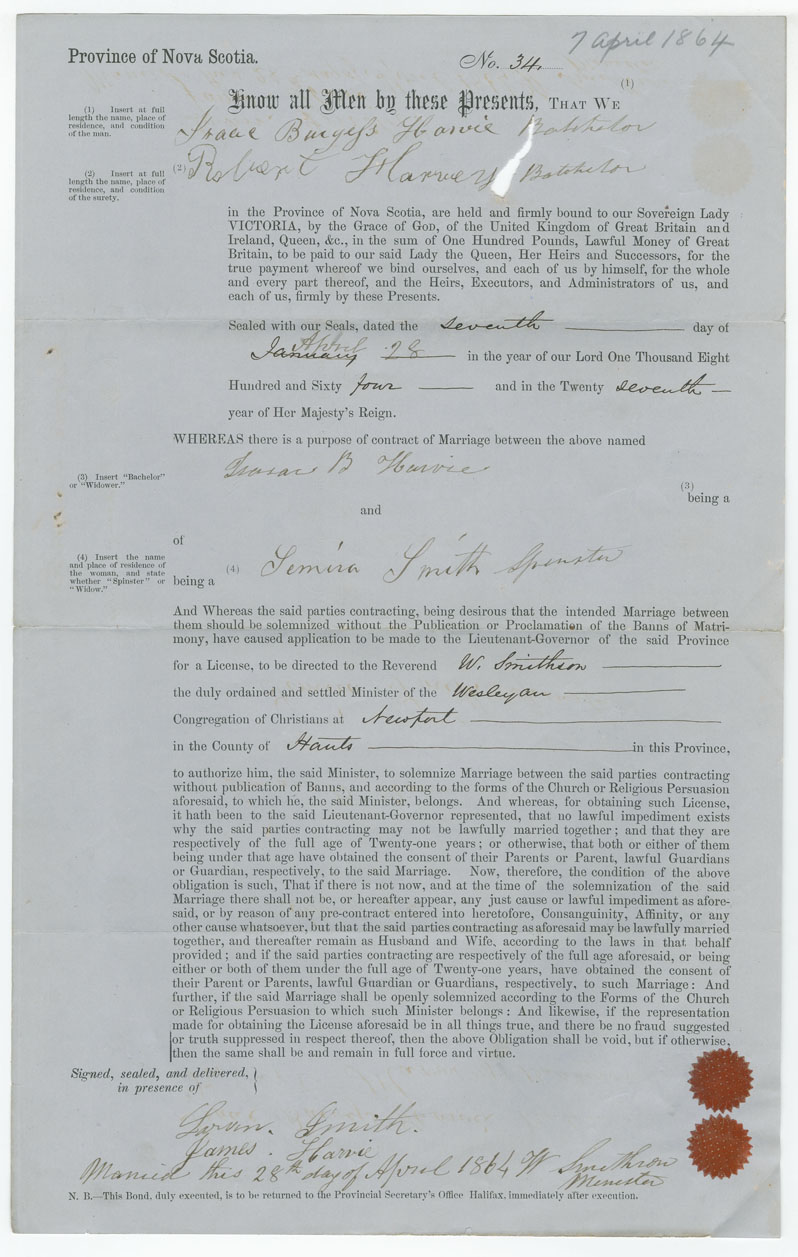 7 April 1864
Province of Nova Scotia.
No. 34.
Know all Men by these Presents, THAT WE (1)
(1) Insert at full
length the name, place of
residence, and condition
of the man.
Isaac Burgess Harvie Batchelor
(2) Robert Harvey Batchelor
(2) Insert at full
length the name, place of
residence, and condition
of the surety.
in the Province of Nova Scotia, are held and firmly bound to our Sovereign Lady
VICTORIA, by the Grace of GOD, of the United Kingdom of Great Britain and
Ireland, Queen, &c., in the sum of One Hundred Pounds, Lawful Money of Great
Britain, to be paid to our said Lady the Queen, Her Heirs and Successors, for the
true payment whereof we bind ourselves, and each of us by himself, for the whole
and every part thereof, and the Heirs, Executors, and Administrators of us, and
each of us, firmly by these Presents.
Sealed with our Seals, dated the seventh day of
April
January 28 in the year of our Lord One Thousand Eight
Hundred and Sixty four and in the Twenty seventh
year of Her Majesty's Reign.
WHEREAS there is a purpose of contract of Marriage between the above named
B Harvie
(3) Insert "Bachelor"
or "Widower."
(3)
being a
and
of
(4) Insert the name
and place of residence of
the woman, and state
whether "Spinster" or
"Widow."
being a (4) Semira Smith Spinster
And Whereas the said parties contracting, being desirous that the intended Marriage between
them should be solemnized without the Publication or Proclamation of the Banns of Matri-
mony, have caused application to be made to the Lieutenant-Governor of the said Province
for a License, to be directed to the Reverend W. Smithson
the duly ordained and settled Minister of the Wesleyan
Congregation of Christians at Newport
in the County of Hants in this Province,
to authorize him, the said Minister, to solemnize Marriage between the said parties contracting
without publication of Banns, and according to the forms of the Church or Religious Persuasion
aforesaid, to which he, the said Minister, belongs. And whereas, for obtaining such License,
it hath been to the said Lieutenant-Governor represented, that no lawful impediment exists
why the said parties contracting may not be lawfully married together; and that they are
respectively of the full age of Twenty-one years; or otherwise, that both or either of them
being under that age have obtained the consent of their Parents or Parent, lawful Guardians
or Guardian, respectively, to the said Marriage. Now, therefore, the condition of the above
obligation is such, That if there is not now, and at the time of the solemnization of the said
Marriage there shall not be, or hereafter appear, any just cause or lawful impediment as afore-
said, or by reason of any pre-contract entered into heretofore, Consanguinity, Affinity, or any
other cause whatsoever, but that the said parties contracting as aforesaid may be lawfully married
together, and thereafter remain as Husband and Wife, according to the laws in that behalf
provided; and if the said parties contracting are respectively of the full age aforesaid, or being
either or both of them under the full age of Twenty-one years, have obtained the consent of
their Parent or Parents, lawful Guardian or Guardians, respectively, to such Marriage: And
further, if the said Marriage shall be openly solemnized according to the Forms of the Church
or Religious Persuasion to which such Minister belongs: And likewise, if the representation
made for obtaining the License aforesaid be in all things true, and there be no fraud suggested
or truth suppressed in respect thereof, then the above Obligation shall be void, but if otherwise,
then the same shall be and remain in full force and virtue.
Signed, sealed, and delivered,
in presence of
Smith.
James. Harvie
Married this 28th day of April 1864 W Smithson
Minister
N. B.—This Bond, duly executed, is to be returned to the Provincial Secretary's Office Halifax, immediately after execution.